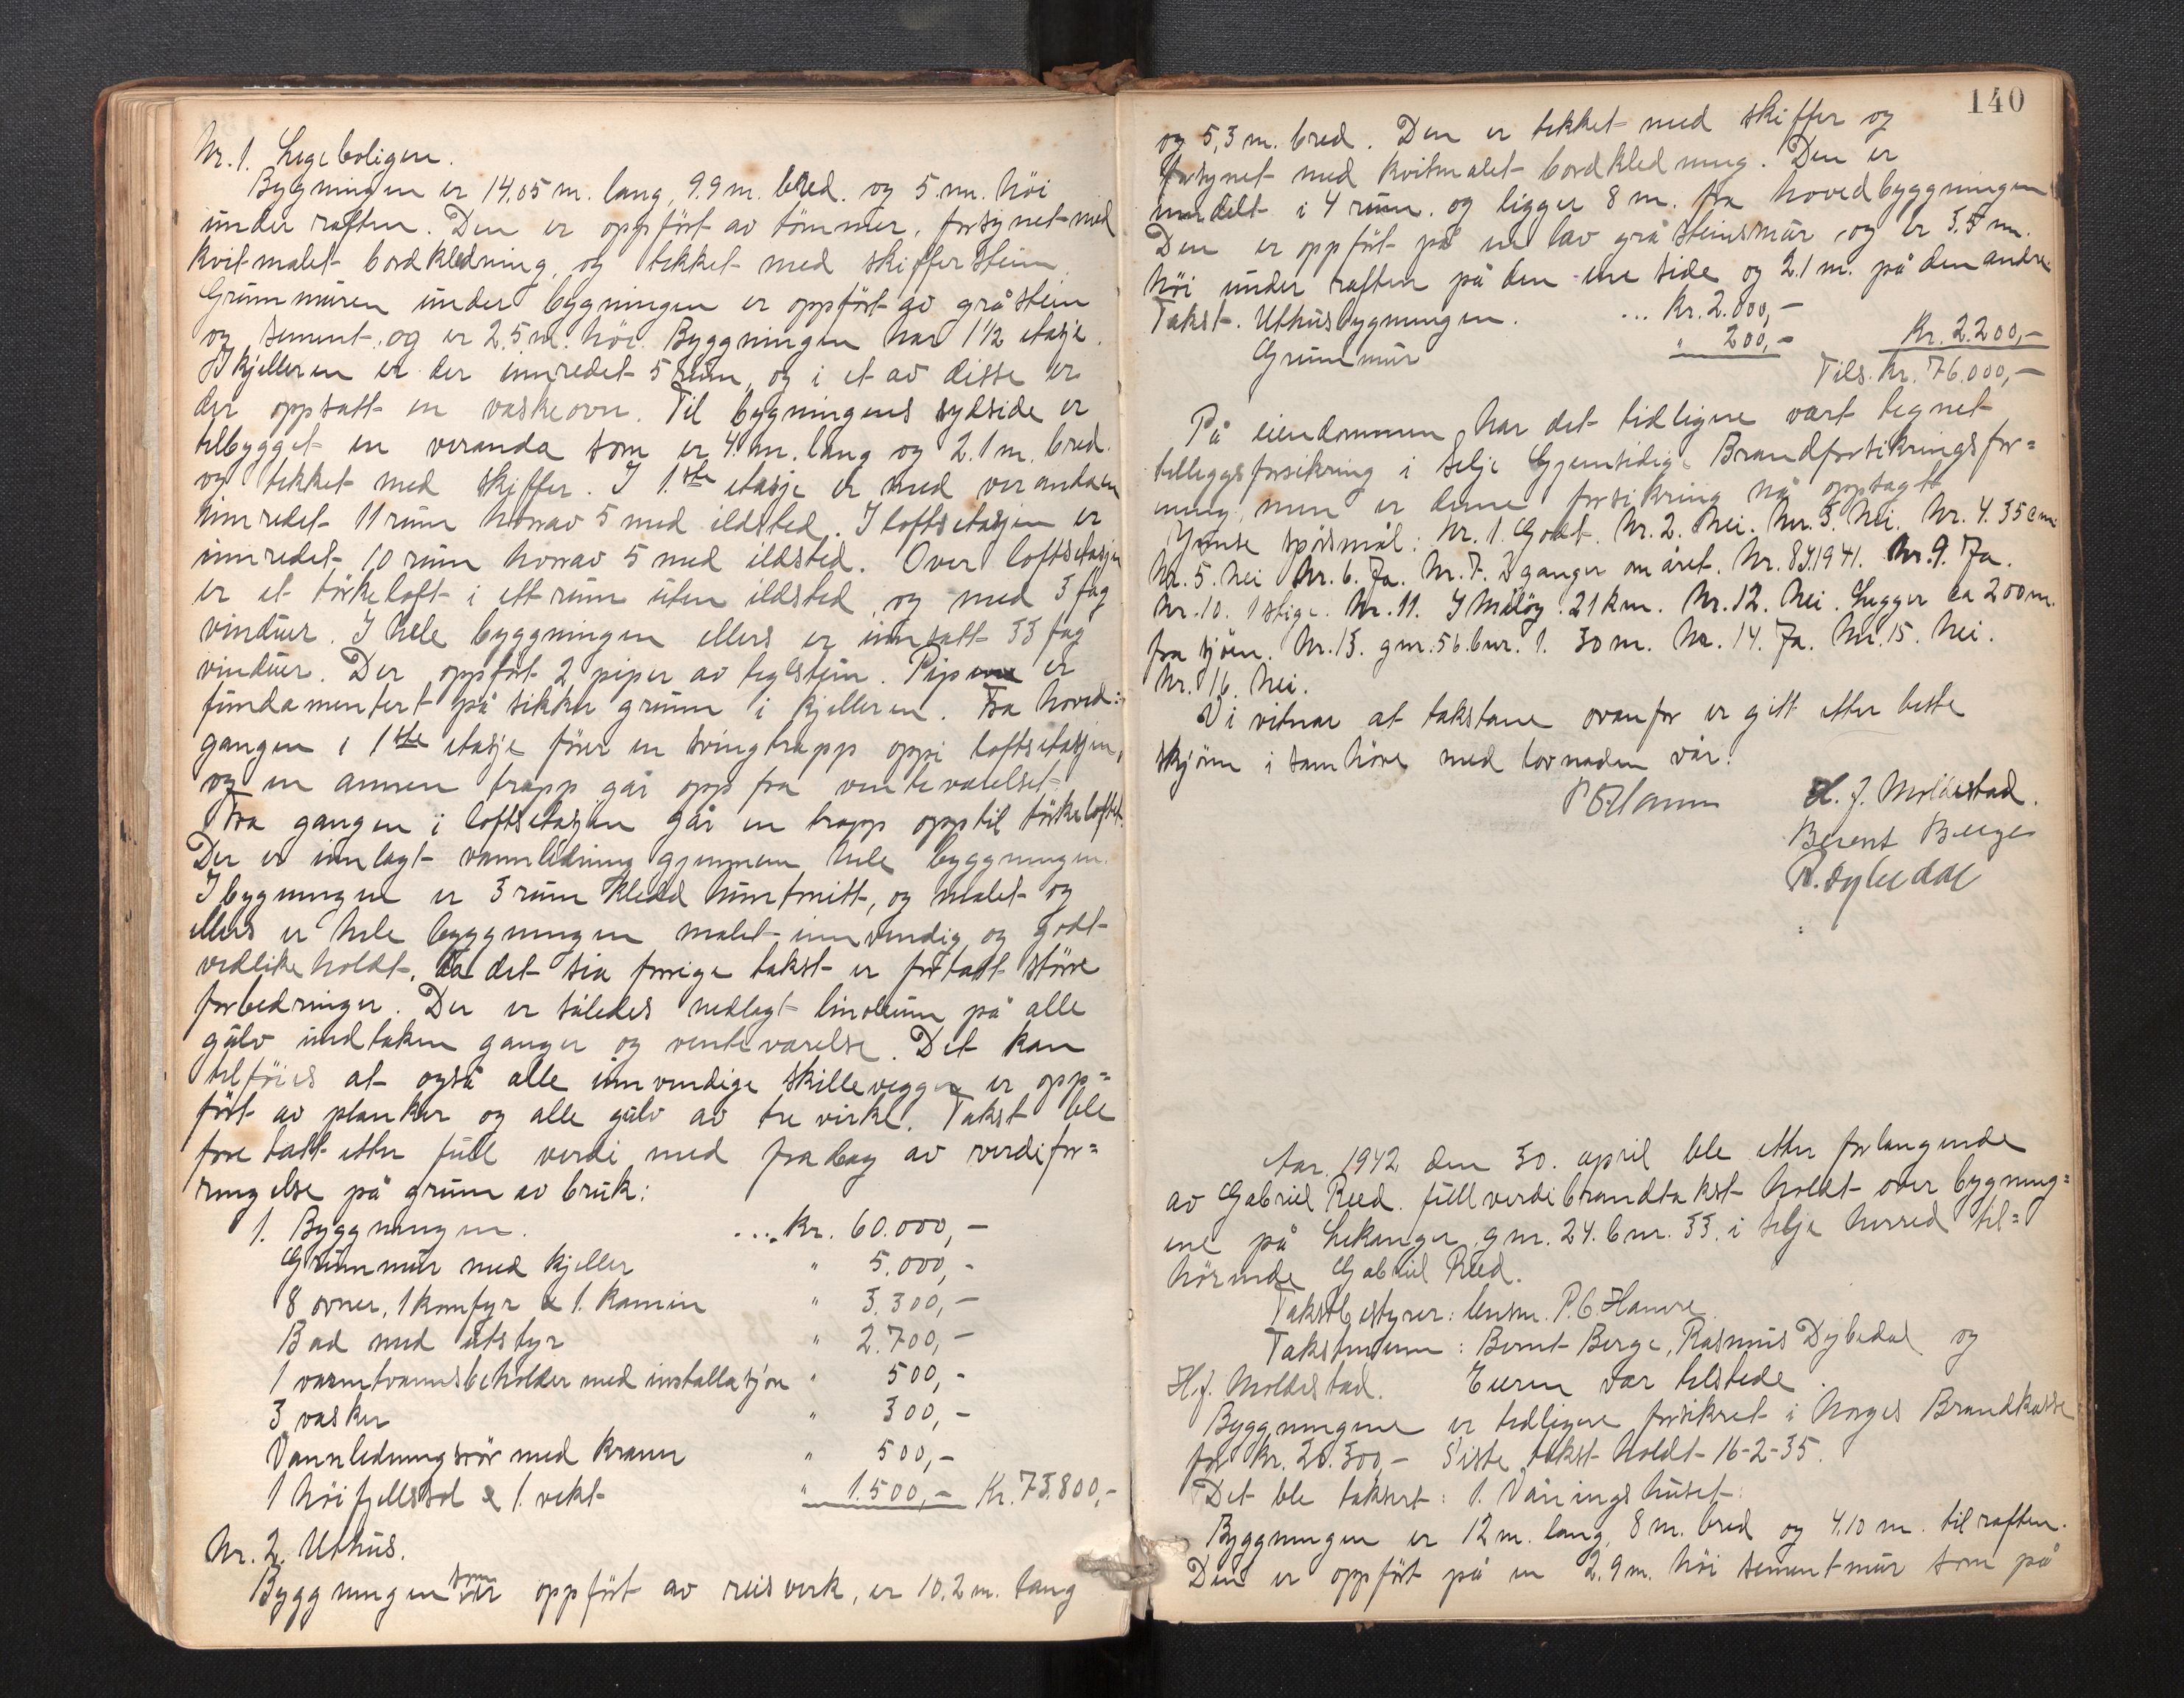 Nr. 1. Legeboligen.
Bygningen er 14.05 m. lang, 9.9 m. bred. og 5. m. höi
under raften. Den er oppfört av tömmer, forsynet med
kvitmalet bordkledning, og tekket med skifferstein.
Grunnmuren under bygningen er oppfört av gråstein
og sement, og er 2.5 m. höi. Byggningen har 1 1/2 etasje.
I kjelleren er der innredet 5 rum, og i et av disse er
der oppsatt en vaskeovn. Til bygningens sydside er
tilbygget en veranda som er 4. m. lang og 2.1 m. bred.
og tekket med skiffer. I 1.ste etasje er med verandaen
innredet 11 rum hvorav 5 med ildsted. I loftsetasjen er
innredet 10 rum hvorav 5 med ildsted. Over loftsetasjen
er et törkeloft i ett rum uten ildsted, og med 3 fag
vinduer. I hele byggningen ellers er innsatt 33 fag
vinduer. Der oppfört 2 piper av teglstein. Pipene er
fundamentert på sikker grunn i kjelleren. Fra hoved:
gangen i 1ste etasje förer en svingtrapp oppi loftsetasjen,
og en annen trapp går opp fra venteværelset
Fra gangen i loftsetasjen går en trapp opp til törkeloftet.
Der er innlagt vannledning gjennem hele byggningen.
I bygningen er 3 rum kledd huntonitt, og malet og
ellers er hele byggningen malet innvendig og godt
vedlikeholdt, da det sia forrige takst er foretatt större
forbedringer. Der er således nedlagt linoleum på alle
gulv undtaken ganger og venteværelse. Det kan
tilföies at også alle innvendige skillevegger er opp=
fört av planker og alle gulv av trevirke. Takst ble
foretatt etter full verdi med fradrag av verdifor=
ringelse på grunn av bruk:
1. Byggningen. ... Kr. 60.000,-
Grunnmur med kjeller " 5.000,-
8 ovner, 1 komfyr & 1. kamin " 3.300,-
Bad med utstyr " 2.700,-
1 varmtvannsbeholder med installasjon " 500,-
3 vasker " 300,-
Vannledningsrör med krann " 500,-
1 höifjellssol & 1. vekt " 1.500,- Kr. 73.800,-
Nr. 2. Uthus.
Byggningen som er oppfört av reisverk, er 10.2 m. lang
140
og 5,3 m. bred. Den er tekket med skiffer og
forsynet med kvitmalet bordkledning. Den er
inndelt i 4 rum. og ligger 8 m. fra hovedbyggningen
Den er oppfört på en lav gråsteinsmur, og er 3.5 m.
höi under raften på den ene side og 2.1 m. på den andre
Takst. Uthusbygningen. ... Kr. 2.000,-
Grunnmur " 200,- Kr. 2.200,-
Tils. Kr. 76.000,-
På eiendommen har det tidligere vært tegnet
tilleggsforsikring i Selje Gjensidige Brandforsikringsfor=
ening, men er denne forsikring nå oppsagt
Ymse spörsmål: Nr. 1. Godt. Nr. 2. Nei. Nr. 3. Nei. Nr. 4. 35 cm.
Nr. 5. Nei Nr. 6. Ja. Nr. 7. 2 ganger om året. Nr. 8 I 1941. Nr. 9. Ja.
Nr. 10. 1 stige. Nr. 11. I Målöy. 21 km. Nr. 12. Nei. Ligger ca 200 m.
fra sjöen. Nr. 13. gnr. 56. bnr. 1. 30 m. Nr. 14. Ja. Nr. 15. Nei.
Nr. 16. Nei.
Vi vitnar at takstane ovanfor er gitt etter beste
skjönn i samhöve med lovnaden vår.
P C Hamre H. J. Moldestad.
Berent Berge
R. Dybedal
Aar. 1942 den 30. april ble etter forlangende
av Gabriel Reed. fullverdibrandtakst holdt over bygning=
ene på Leikanger, gnr. 24. bnr. 33. i Selje herred til=
hörende Gabriel Reed.
Takstbestyrer: lensm. P. C. Hamre.
Takstmenn: Bernt Berge, Rasmus Dybedal og
H. J. Moldestad. Eieren var tilstede.
Byggningene er tidligere forsikret i Norges Brandkasse
for Kr. 20.300,- Siste takst holdt 16-2-35.
Det ble taksert: 1. Våningshuset:
Byggningen er 12 m. lang, 8 m. bred og 4.10 m. til raften.
Den er oppfört på en 2.9 m. höi sementmur som på